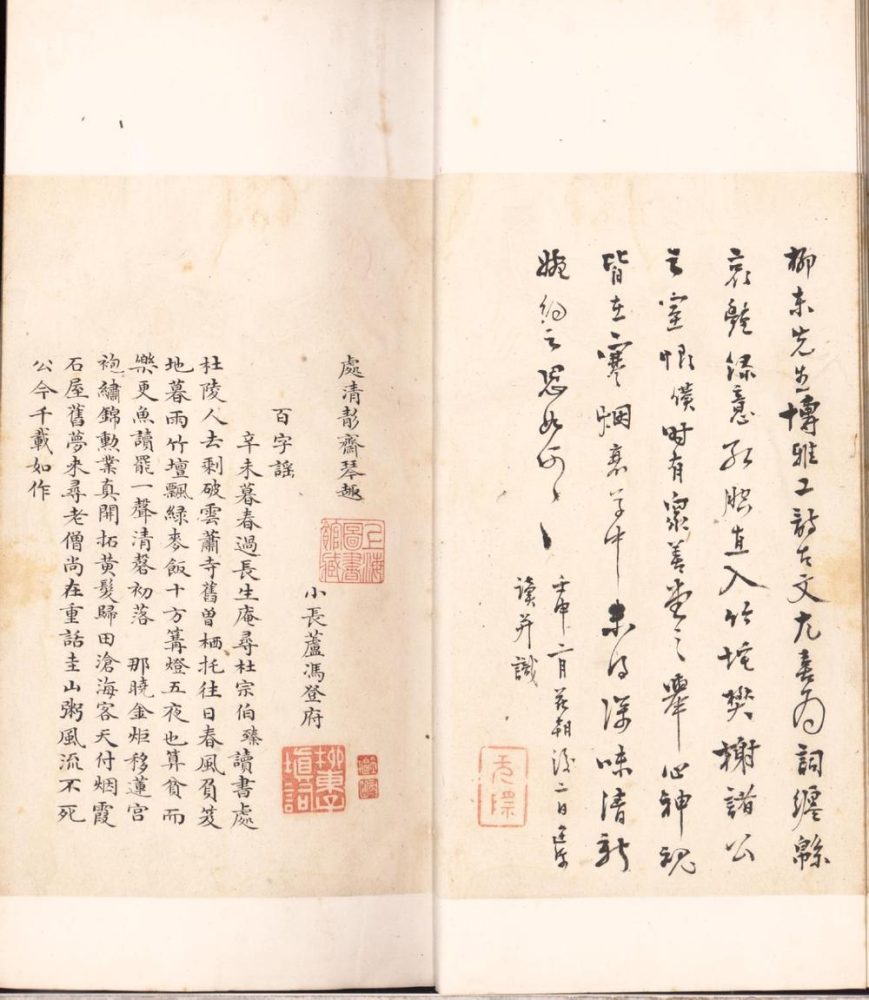 柳東先生博雅工詩古文尤喜為詞纏綿
哀豔綠意紅腔直入竹垞樊榭諸公
之室悵僕時有眾善堂之舉心神魂
皆在寒烟衰草中未得深味清新
婉約之思如何
壬申二月花朝後二日
讀并識
處清彭齋琴趣
上海圖書館藏
小長蘆馮登府
百字謠
辛未暮春過長生庵尋杜宗伯臻讀書處
杜陵人去剩破雲蕭寺舊曾栖托往日春風負笈
地暮雨竹壇飄綠麥飯十方篝燈五夜也算貧而
樂更魚讀罷一聲清磬初落 那曉金炬移蓮宮
袍繡錦勲業真開拓黃髮歸田滄海客天付烟霞
石屋舊夢來尋老僧尚在重話圭山粥風流不死
公今千載如作